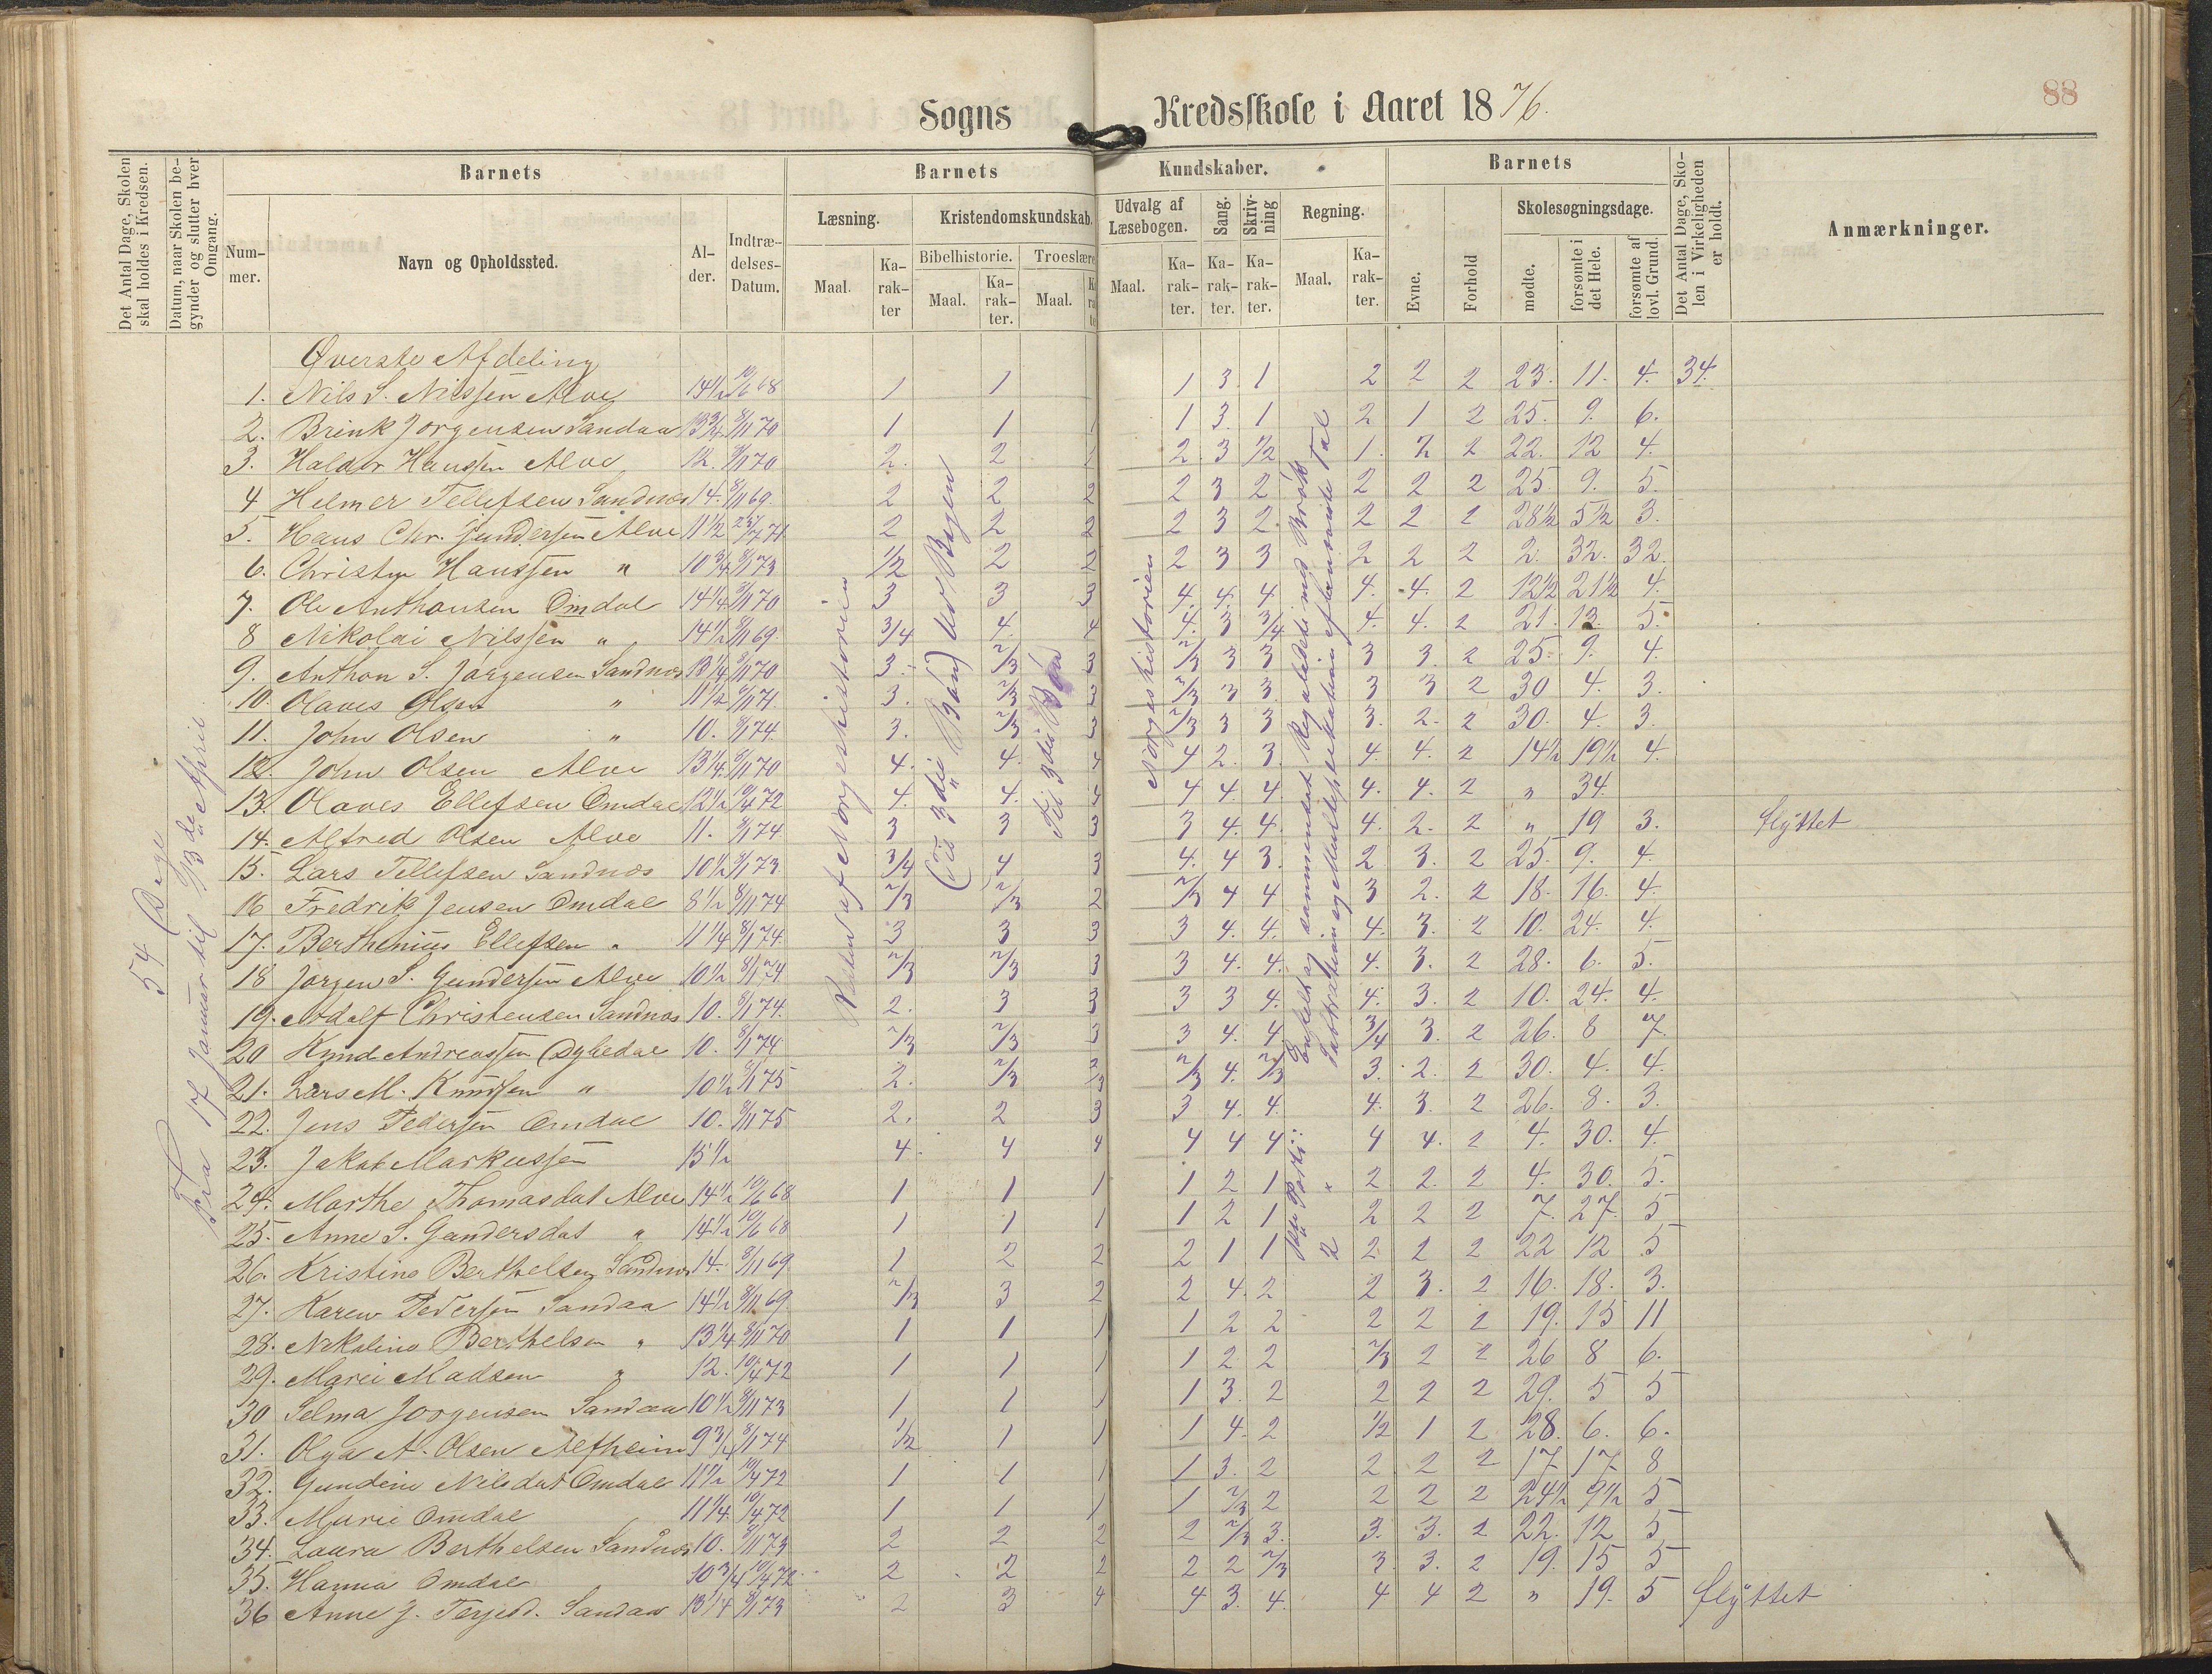 Sogns Kredsskole i Aaret 1876.
88
Det Antal Dage, Skolen skal holdes i Kredsen.
Datum, naar Skolen begynder og slutter hver Omgang.
Barnets
Nummer.
Navn og Opholdssted.
Alder.
Indtrædelses-Datum.
Barnets Kundskaber.
Læsning.
Maal.
Karakter
Kristendomskundskab.
Bibelhistorie.
Maal.
Karakter.
Troeslære
Maal.
Udvalg af Læsebogen.
Maal.
Karakter.
Sang.
Karakter.
Skrivning
Karakter.
Regning.
Maal.
Karakter.
Barnets
Evne.
Forhold
Skolesøgningsdage.
mødte.
forsømte i det Hele.
forsømte af lovl. Grund.
Det Antal Dage, Skolen i Virkeligheden er holdt.
Anmærkninger.
54 Dage
Fra 17 Januar til 13de April
Resten af Norgeshistorien
(Til 3die Bøn) Ud Bogen
Til 3die Bøn
Norgeshistorien
Enkelt og sammensat Regulatetri med Brøk
Øverste Afdeling
1. Nils S. Nilssen Alve 14½ 10/6 68 1 1 1 3. 1 2 2 2 23. 11. 4. 34.
2. Brink Jørgensen Sandaa 13¾ 8/11 70 1 1 1 1 3. 1 2 1 2 25. 9. 6.
3. Haldor Hanssen Alve 12. 8/11 70 2. 2 1 2 3 1/2 1. 2 2 22. 12 4.
4 Helmer Tellefsen Sandnes 14. 8/11 69. 2 2 2 2 3 2 2 2 2 25. 9. 5.
5. Hans Chr. Gundersen Alve 11½ 2 2 2 2 3 2. 2 2 2 28½ 5½ 3.
6. Christen Hanssen " 10¾ 8/1 73 1/2 2 2 2 3 3 2 2 2 2. 32. 32.
7. Ole Anthonsen Omdal 14¼ 8/11 70 3 3 3 4. 4. 4 4. 4. 2 12½ 21½ 4.
8 Nikolai Nilssen " 14½ 8/11 69. 3/4 4. 4 4. 3 3/4 4. 4. 2 21. 13. 5.
9. Anthon S. Jørgensen Sandnes 13¼ 8/11 70 3. 2/3 3 2/3 3 3 3 3. 2 25. 9. 4.
10. Olaves Olsen " 11½ 8/11 71. 3. 2/3 3 2/3 3 3. 3 3 2 30 4. 3.
11. John Olsen " 10. 8/1 74. 3. 2/3 3 2/3 3 3 3. 2. 2 30. 4. 3.
12. John Olsen Alve 13¼ 8/11 70 4. 4. 4 4 2. 3. 4. 4. 2 14½ 19½ 4.
13. Olaves Ellefsen Omdal 12½ 10/4 72 4. 4. 4 4 4. 4. 4. 4. 2 " 34.
14. Alfred Olsen Alve 11. 8/1 74. 3 3 3 3 4. 4. 4. 2. 2 " 19 3. flyttet
15. Lars Tellefsen Sandnes 10½ 8/1 73. 3/4 4 3 4. 4 3. 2 3. 2 25. 9. 4.
16 Fredrik Jensen Omdal 8½ 8/11 74 2/3 2/3 2 2/3 4 4 3 2. 2 18. 16. 4.
17. Berthinius Ellefsen " 11¼ 8/1 74. 3 3 3 3 4. 4. 4. 3. 2 10. 24. 4.
18 Jørgen S. Gundersen Alve 10½ 8/1 74 2/3 2/3 3 3 4. 4. 4. 3. 2 28. 6. 5.
19. Adolf Christensen Sandnes 10. 8/1 74. 2. 3 3 3 3 4. 4. 3. 2 10. 24. 4.
20 Knud Andreassen Dybedal 10. 8/1 74. 2/3 2/3 3 3 4. 4 3/4 3. 2 26. 8 7.
21. Lars M. Knudsen " 10½ 8/1 75 2. 2/3 2/3 2/3 4. 2/3 3. 2. 2 30. 4. 4.
22. Jens Pedersen Omdal 10. 8/11 75 2. 2 3 3 4. 4. 4. 3. 2 26. 8. 3.
23. Jakob Markussen 15½ 4. 4 4 4 4 4 4 4. 2 4. 30. 4.
24. Marthe Thomasdat Alve 14½ 10/6 68 1 1 1 1 2 1 2 2. 2 4. 30. 5.
25. Anne S. Gundersdat " 14½ 10/6 68 1 1 1 1 2 1 2 2 2 7. 27. 5
26. Kristine Berthelsen Sandnes 14. 8/11 69. 1 2 2 2 1 1 2 2 2 22 12 5
27. Karen Pedersen Sandaa 14½ 8/11 69. 2/3 3 2 2 4. 2 2 3. 2 16. 18. 3.
28. Nikoline Berthelsen " 13¼ 8/11 70 1 1 1 1 2 2 2 2 2 19. 15 11
29. Marei Madsen " 12. 10/4 72 1 1 1 1 2 2 2/3 2 2 26 8 6.
30 Selma Jørgensen Sandaa 10½ 8/11 73 1 1 1 1 3. 2 2 2 2 29. 5 5
31. Olga A. Olsen Alfheim 9¾ 8/1 74 1/2 1 1 1 4. 2 1/2 1 2 28. 6. 6.
32. Gundine Nilsdat Omdal 11½ 10/4 72 1 1 1 1 3. 2 2 2 2 17 17 8
33. Marie Omdal 11¼ 10/4 72 1 1 1 1 2/3 2 2 2 2 24½ 9½ 5
34. Laura Berthelsen Sandnes 10. 8/11 73 2 2 2 2 2/3 3. 3. 3. 2 22. 12 5
35. Hanna Omdal 10¾ 10/4 72 2 2 2 2 2 2/3 3 3. 2 19. 15 5
36 Anne J. Terjesd. Sandaa 13¼ 8/1 73 2 3 4 4 3. 4. 4 4 2 " 19. 5 flyttet